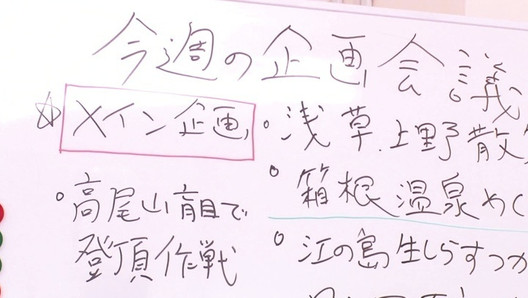 今週の企画会議
☆メイン企画
・高尾山盲目で
登頂作戦
・浅草.上野散
・箱根温泉めぐ
・江の島生しらすつか